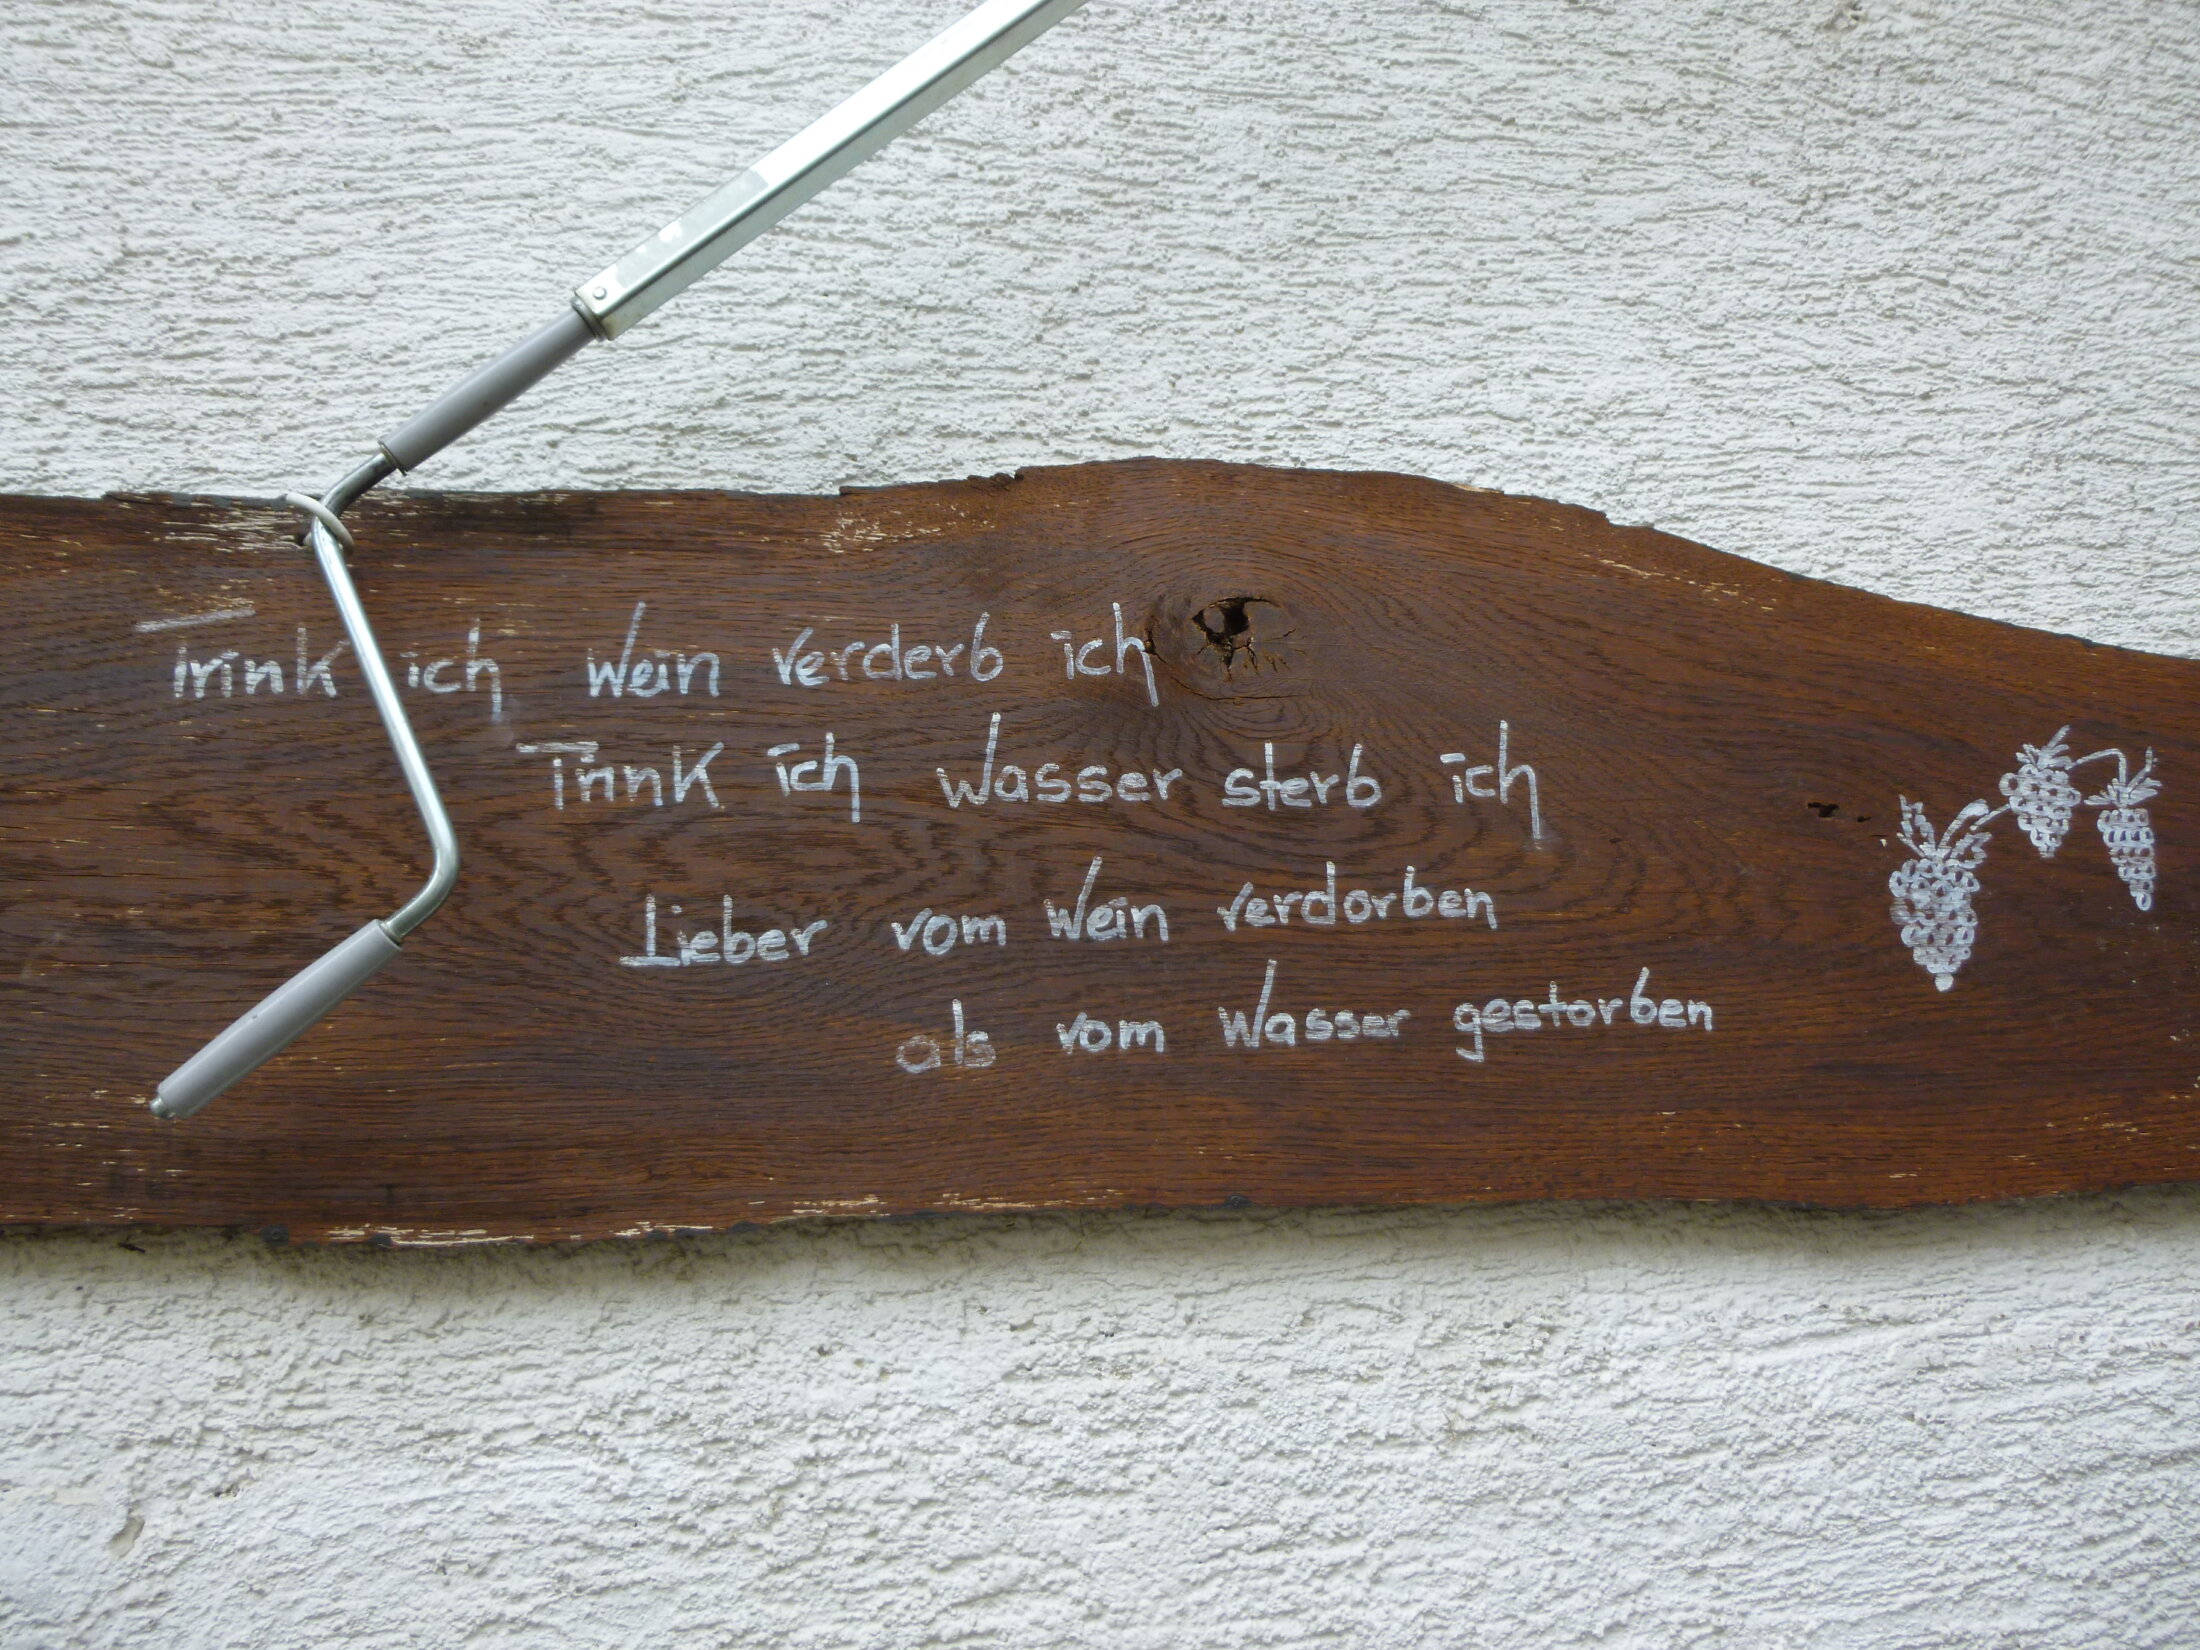 Trink ich Wein verderb ich
Trink ich Wasser sterb ich
Lieber vom Wein verdorben
als vom Wasser gestorben